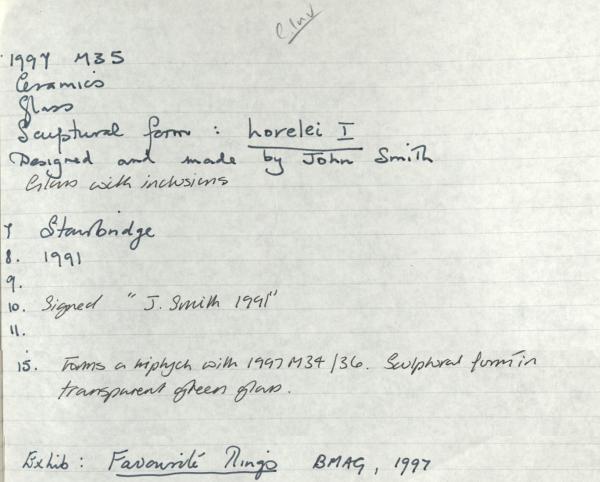 E Inv
1997 M35
Ceramics
Glass
Sculptural form : Lorelei I
Designed and made by John Smith
Glass with inclusions
7 Stourbridge
8. 1991
9.
10. Signed "J. Smith 1991"
11.
15. Forms a triptych with 1997 M34/36. Sculptural form in
transparent green glass.
Exhib : Favourite Things BMAG, 1997